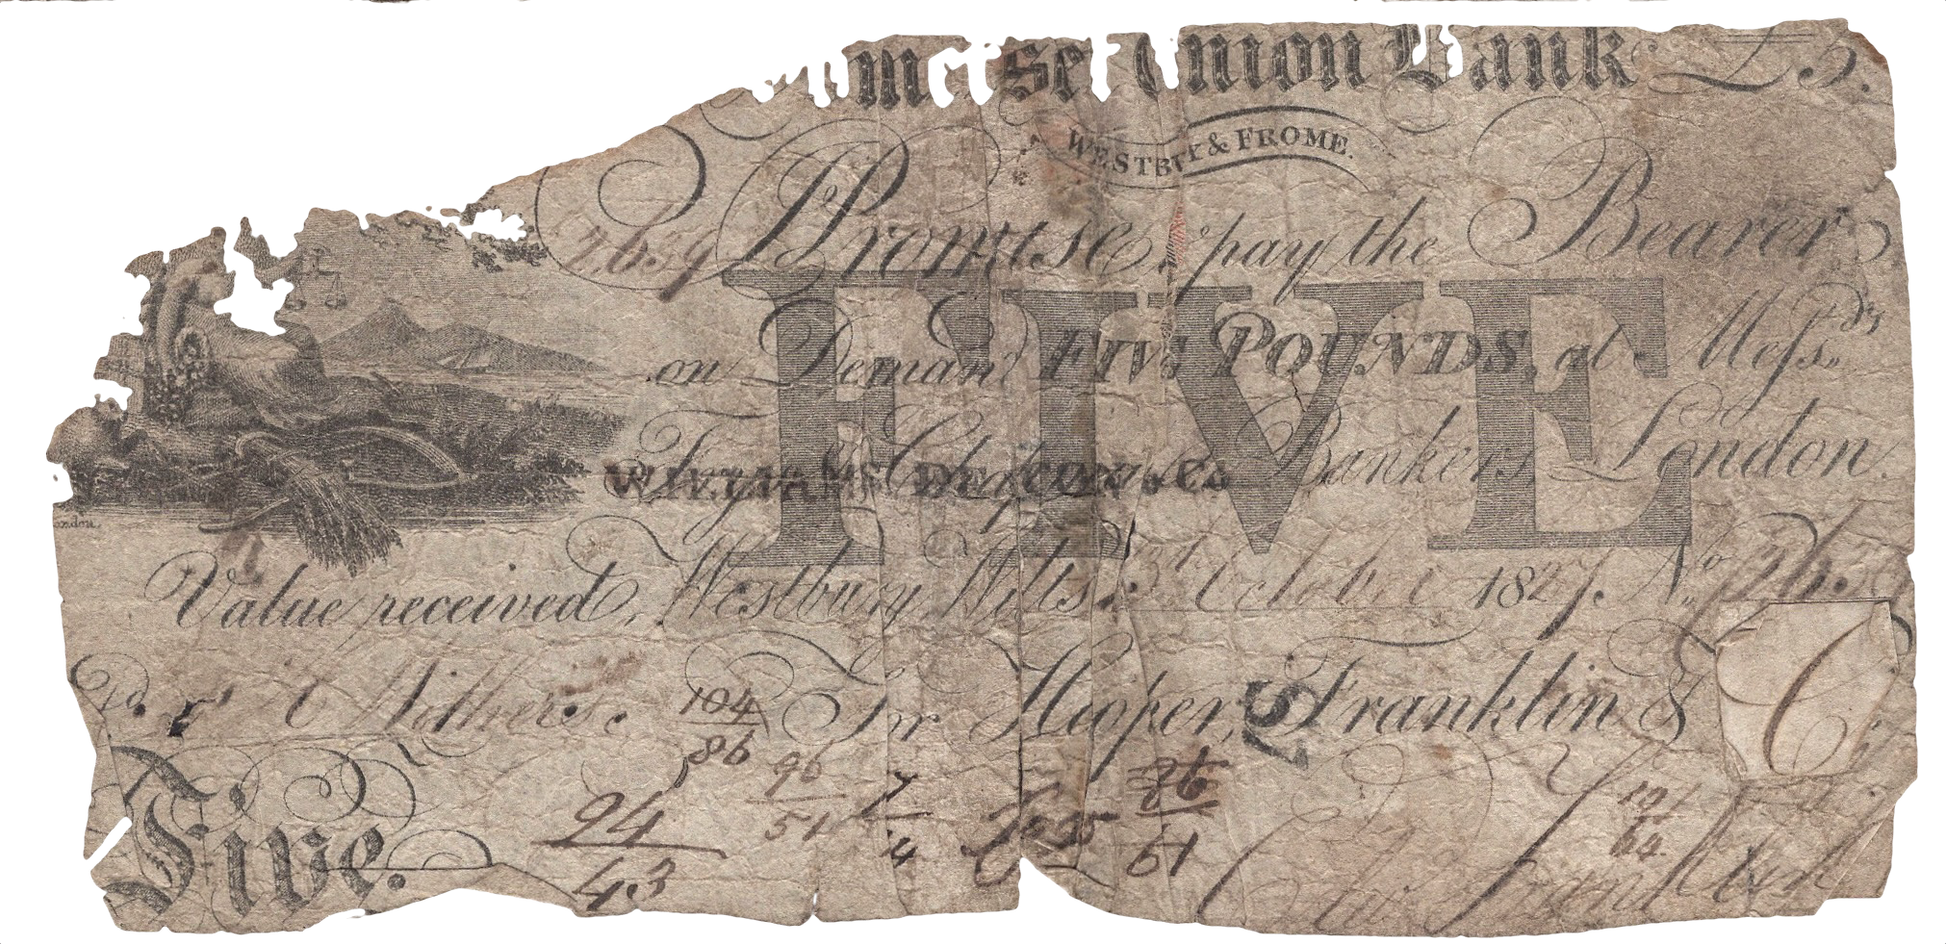 m se Union Bank £5.
WESTBY & FROME.
7,659 I Promise to pay the Bearer
on Demand FIVE POUNDS, at Mefs.rs
FIVE
Bankers London.
WILLIAMS DEACON & Co
ondon.
Value received, Westbury Wilts. 31 October 1827. No
Withers. For Hooper, Franklin &
C
104
86
96
51
7
4
26
61
101
64
Five.
94
43
Franklin